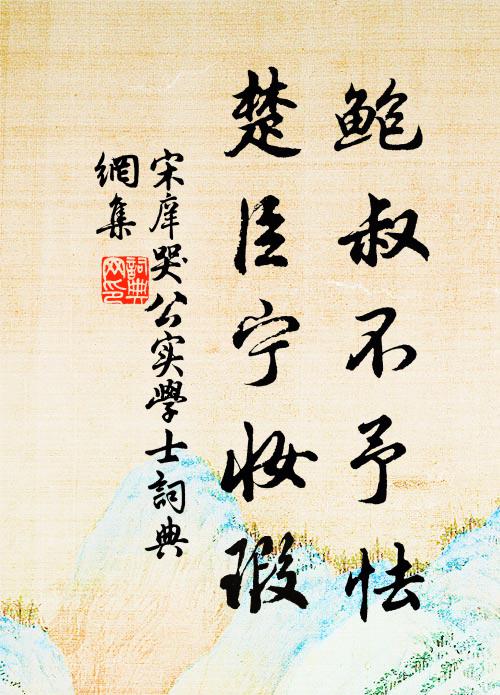 鲍叔不予怯
楚臣宁妆瑕
宋庠哭公实學士詞典
網集
詞典網印